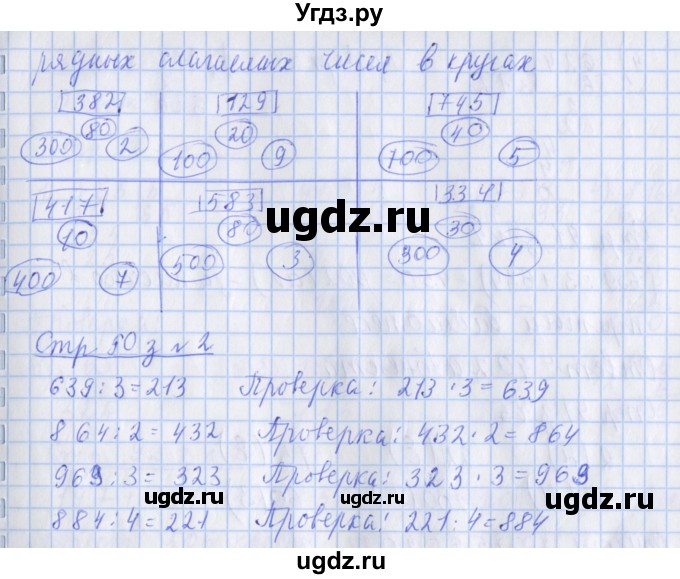 Угдз.ру
рядных слагаемых чисел в кругах
382 129 745
80 20 40
300 2 100 9 700 5
417 583 334
10 80 30
400 7 500 3 300 4
ugdz.ru
ugdz.ru
Стр 50 з №2
639:3=213 Проверка: 213·3=639
ugdz.ru
864:2=432 Проверка: 432·2=864
969:3=323 Проверка: 323·3=969
ugdz.ru ugdz.ru
884:4=221 Проверка: 221·4=884
ugdz.ru